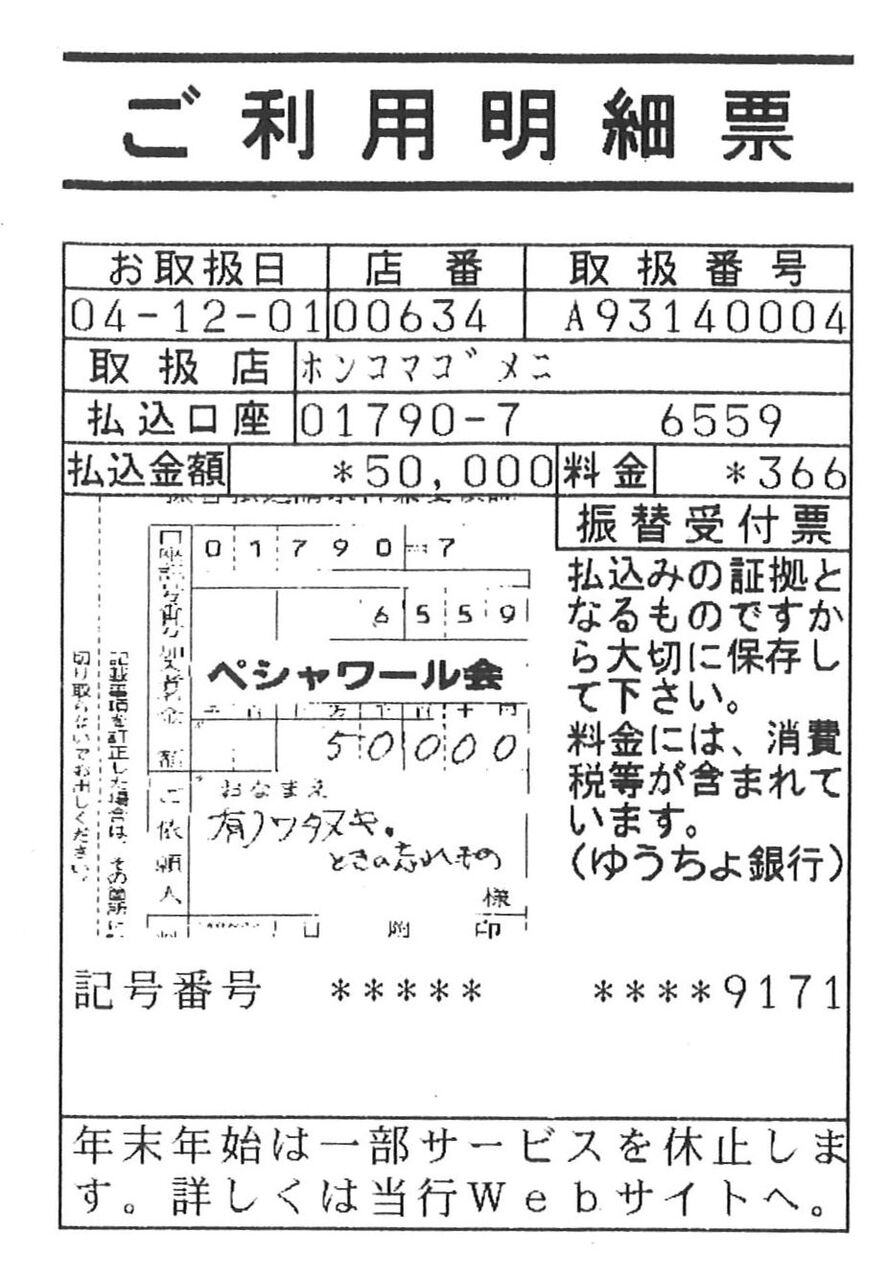 ご利用明細票
お取扱日 店番 取扱番号
04-12-01 00634 A93140004
取扱店 ホンコマゴメニ
払込口座 01790-7 6559
払込金額 *50,000 料金 *366
振替受付票
払込みの証拠と
なるものですか
ら大切に保存し
て下さい。
料金には、消費
税等が含まれて
います。
(ゆうちょ銀行)
口座記号番号
01790-7
6559
加入者名
ペシャワール会
金額
千百十万千百十円
50000
ご依頼人
おなまえ
有)ワタヌキ.
ときの忘れもの
様
記載事項を訂正した場合は、その箇所に
切り取らないでお出しください。
記号番号 ***** ****9171
年末年始は一部サービスを休止しま
す。詳しくは当行Webサイトへ。